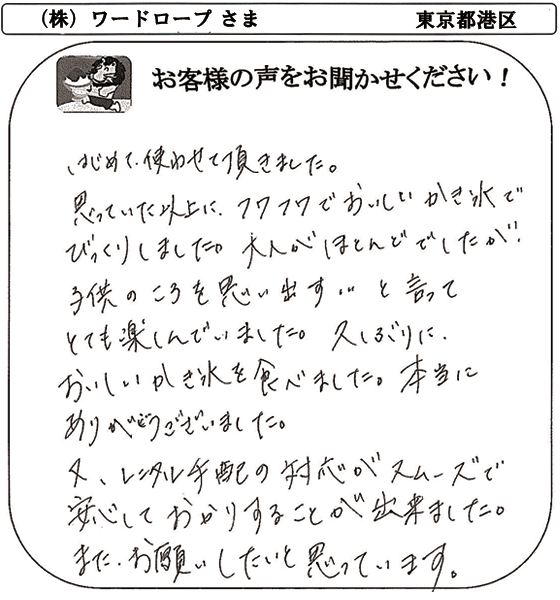 （株）ワードロープ さま　東京都港区
お客様の声をお聞かせください！
はじめて、使わせて頂きました。
思っていた以上に、フワフワでおいしいかき氷で
びっくりしました。大人がほとんどでしたが、
子供のころを思い出す… と言って
とても楽しんでいました。久しぶりに、
おいしいかき氷を食べました。本当に
ありがとうございました。
又、レンタル手配の対応がスムーズで
安心しておかりすることが出来ました。
また、お願いしたいと思っています。